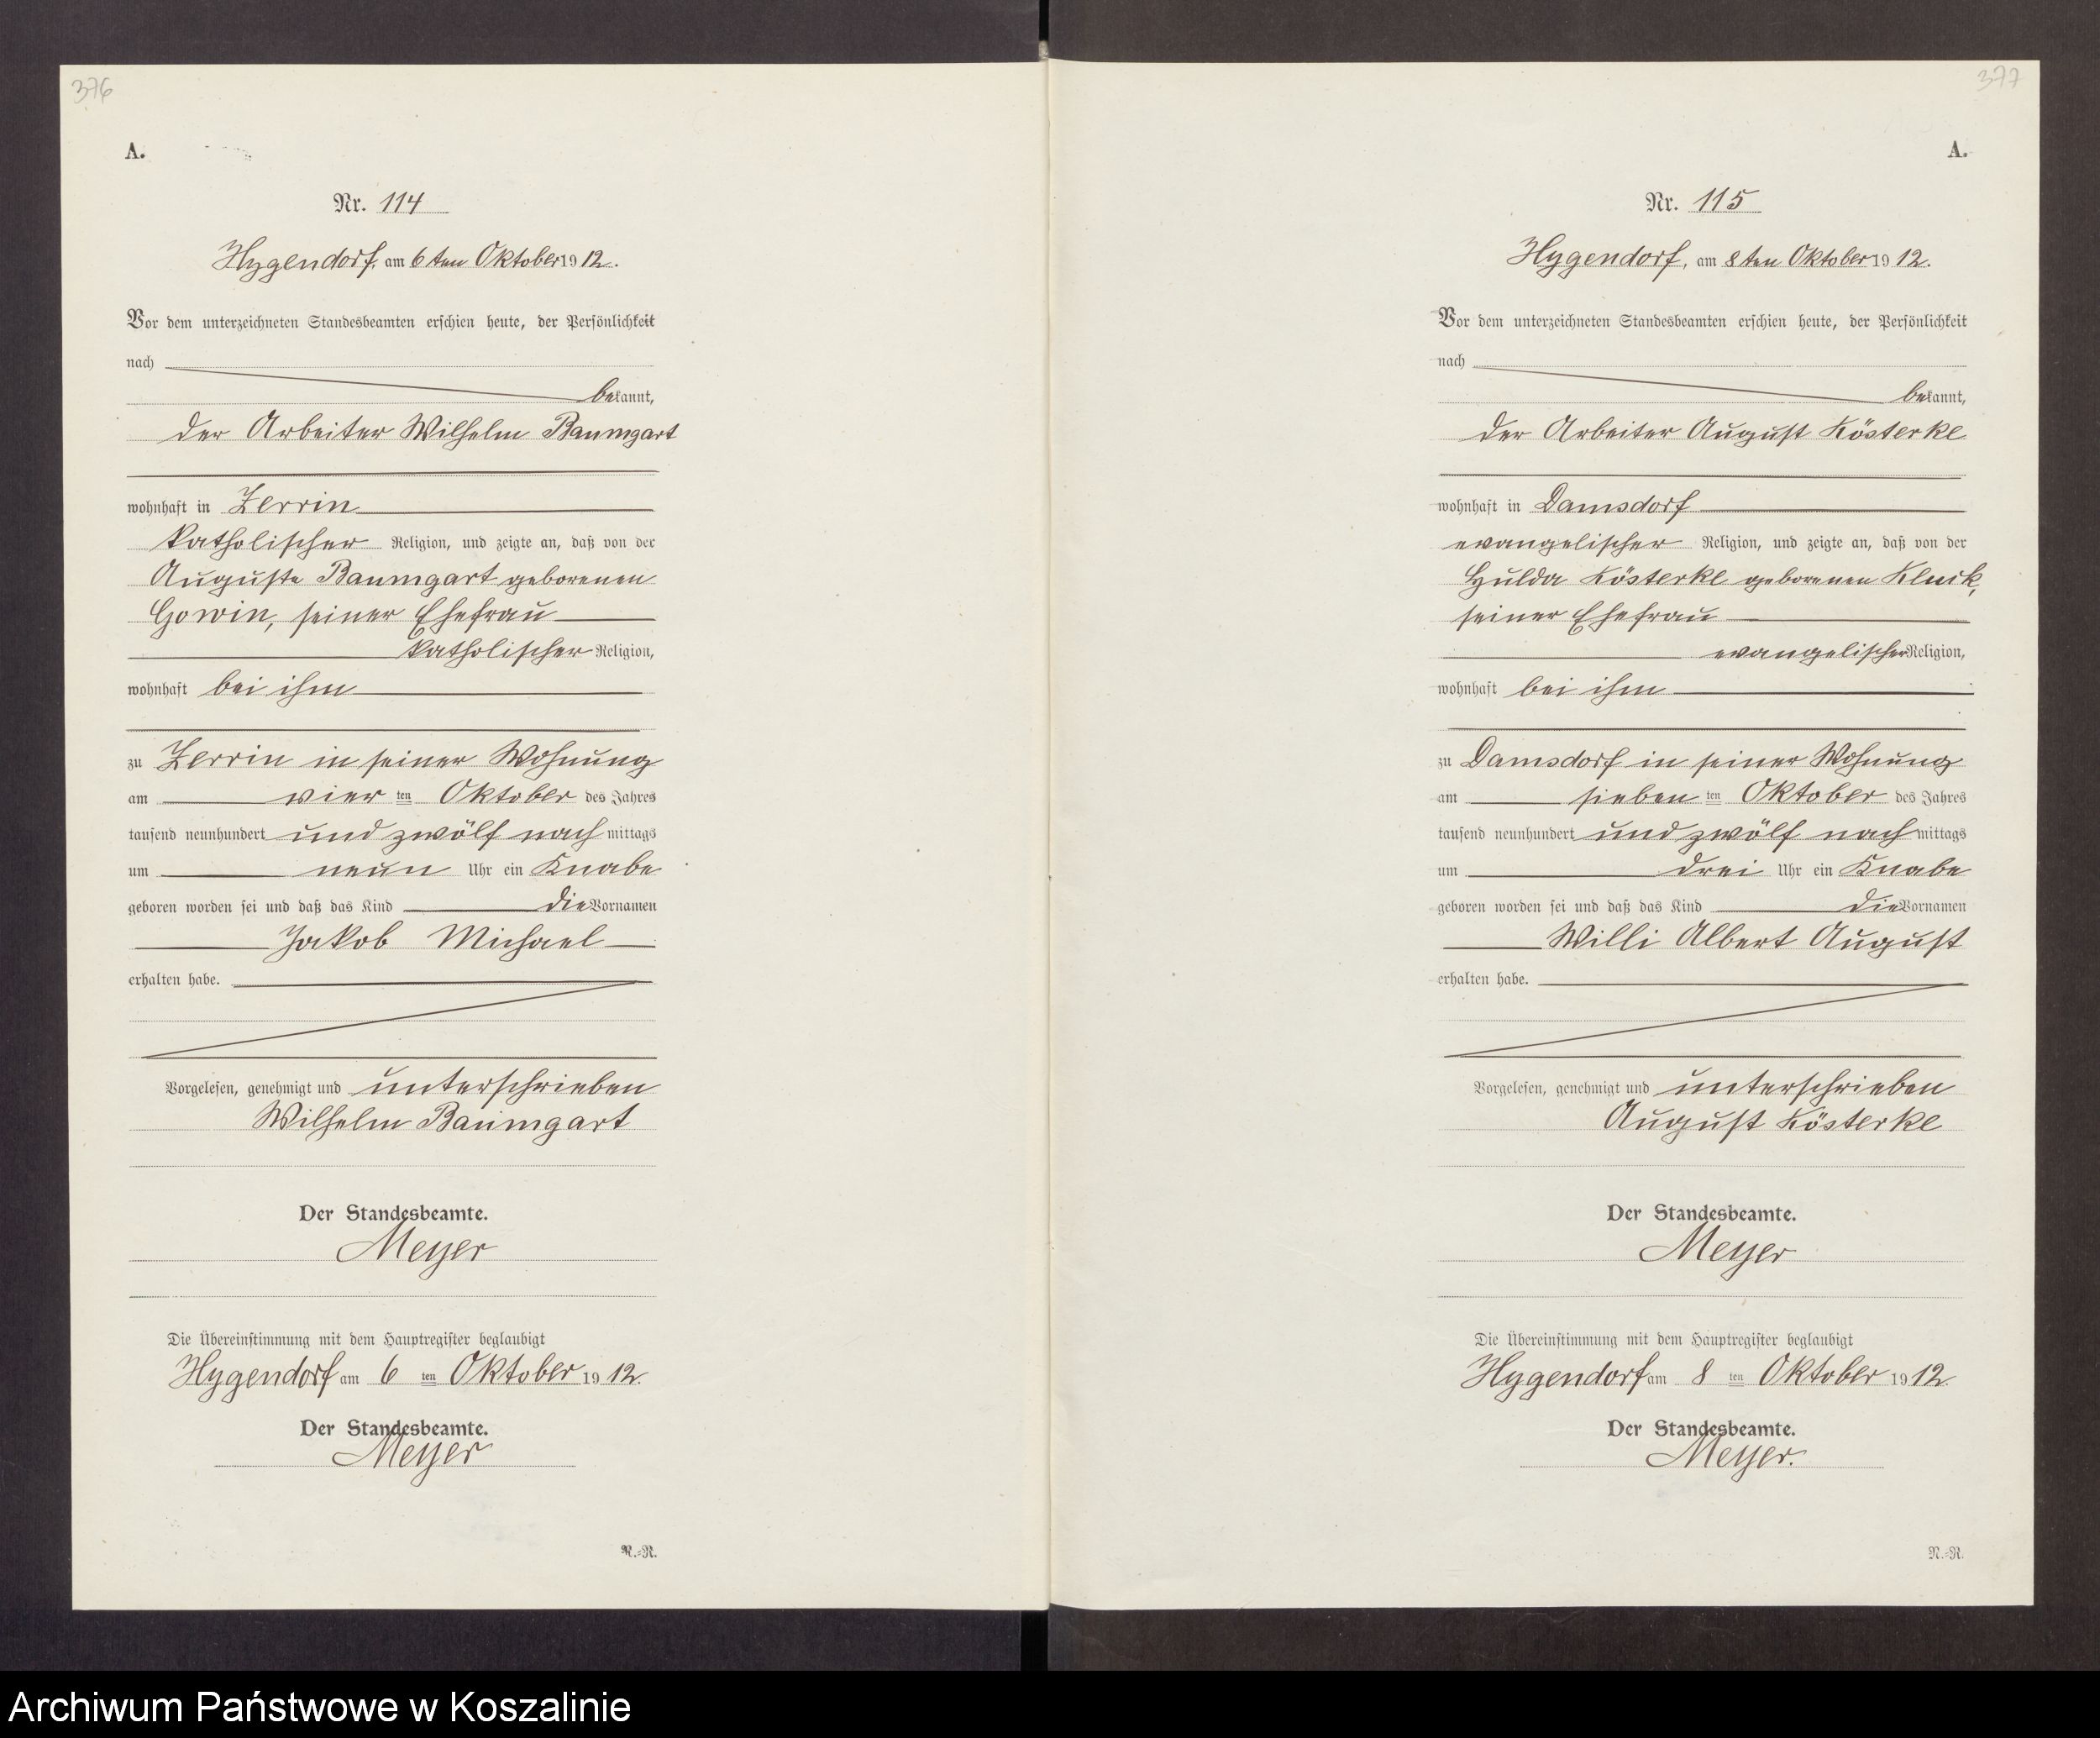 376
A.
Nr. 114
Hygendorf, am 6 ten Oktober 1912.
Vor dem unterzeichneten Standesbeamten erschien heute, der Persönlichkeit
nach
bekannt,
der Arbeiter Wilhelm Baumgart
wohnhaft in Zerrin
katholischer Religion, und zeigte an, daß von der
Auguste Baumgart geborenen
Gowin, seiner Ehefrau
katholischer Religion,
wohnhaft bei ihm
zu Zerrin in seiner Wohnung
am vier ten Oktober des Jahres
tausend neunhundert und zwölf nach mittags
um neun Uhr ein Knabe
geboren worden sei und daß das Kind die Vornamen
Jakob Michael
erhalten habe.
Vorgelesen, genehmigt und unterschrieben
Wilhelm Baumgart
Der Standesbeamte.
Meyer
Die Übereinstimmung mit dem Hauptregister beglaubigt
Hygendorf am 6 ten Oktober 1912.
Der Standesbeamte.
Meyer
N.=R.
377
A.
Nr. 115
Hygendorf, am 8 ten Oktober 1912.
Vor dem unterzeichneten Standesbeamten erschien heute, der Persönlichkeit
nach
bekannt,
der Arbeiter August Kösterke
wohnhaft in Damsdorf
evangelischer Religion, und zeigte an, daß von der
Hulda Kösterke geborenen Kluik,
seiner Ehefrau
evangelischer Religion,
wohnhaft bei ihm
zu Damsdorf in seiner Wohnung
am sieben ten Oktober des Jahres
tausend neunhundert und zwölf nach mittags
um drei Uhr ein Knabe
geboren worden sei und daß das Kind die Vornamen
Willi Albert August
erhalten habe.
Vorgelesen, genehmigt und unterschrieben
August Kösterke
Der Standesbeamte.
Meyer
Die Übereinstimmung mit dem Hauptregister beglaubigt
Hygendorf am 8 ten Oktober 1912.
Der Standesbeamte.
Meyer.
N.=R.
Archiwum Państwowe w Koszalinie